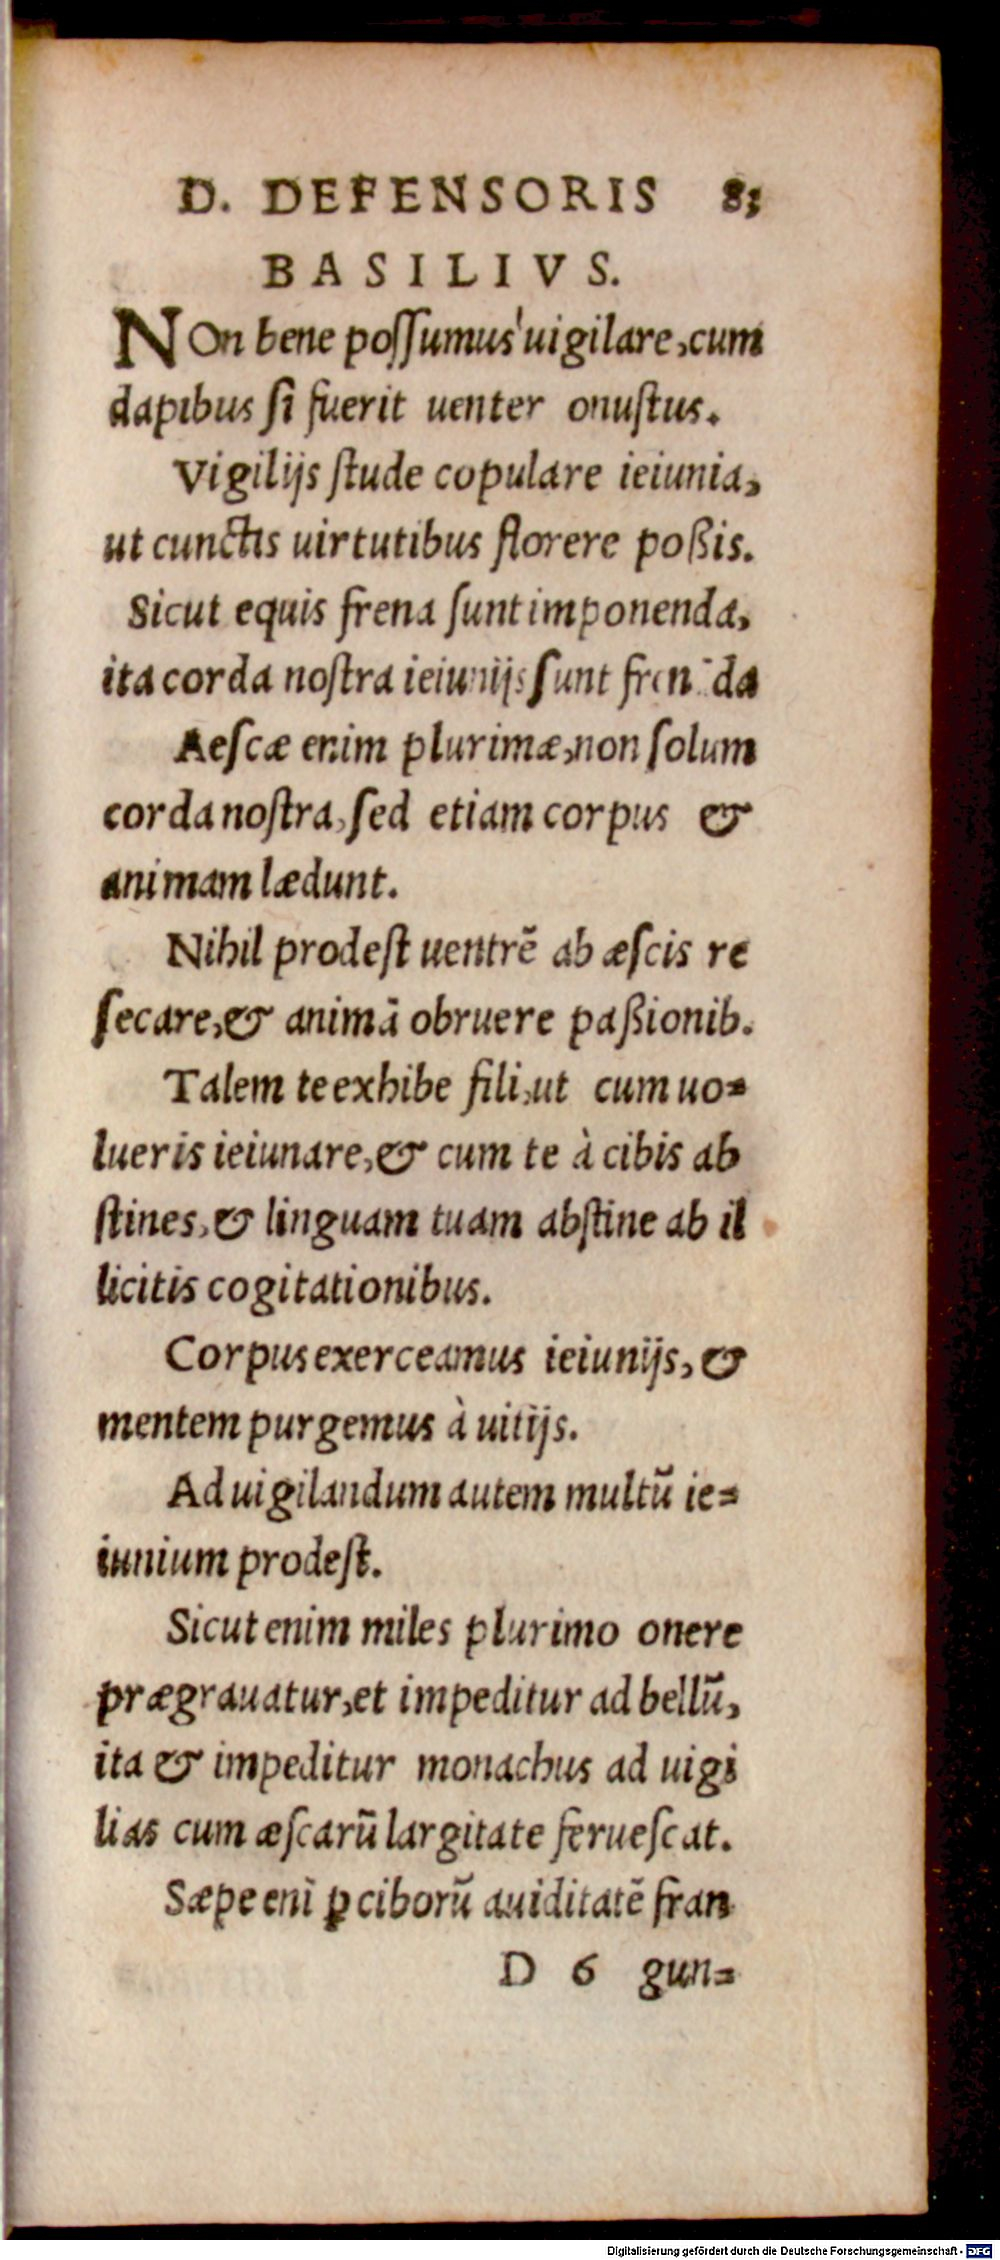 D. DEFENSORIS 83
BASILIVS.
NOn bene poſſumus uigilare, cum
dapibus ſi fuerit uenter onuſtus.
Vigilijs ſtude copulare ieiunia,
ut cunctis uirtutibus florere poßis.
Sicut equis frena ſunt imponenda,
ita corda noſtra ieiunijs ſunt fren da
Aeſcæ enim plurimæ, non ſolum
corda noſtra, ſed etiam corpus &
animam lædunt.
Nihil prodeſt uentrē ab æſcis re
ſecare, & animā obruere paßionib.
Talem te exhibe fili, ut cum uo=
lueris ieiunare, & cum te à cibis ab
ſtines, & linguam tuam abſtine ab il
licitis cogitationibus.
Corpus exerceamus ieiunijs, &
mentem purgemus à uitijs.
Ad uigilandum autem multū ie=
iunium prodeſt.
Sicut enim miles plurimo onere
prægrauatur, et impeditur ad bellū,
ita & impeditur monachus ad uigi
lias cum æſcarū largitate ferueſcat.
Sæpe enī ꝑ ciborū auiditatē fran
D 6 gun=
Digitalisierung gefördert durch die Deutsche Forschungsgemeinschaft - DFG